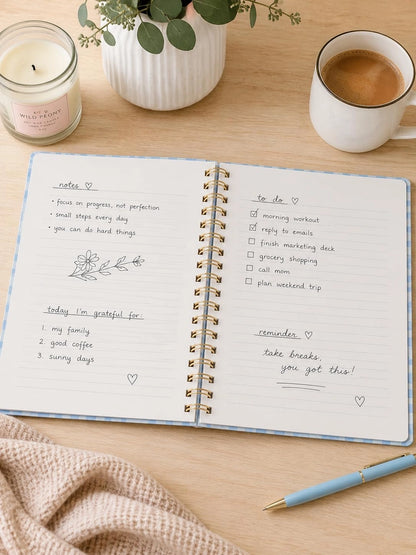 WILD PEONY
notes ♡
• focus on progress, not perfection
• small steps every day
• you can do hard things
today I'm grateful for:
1. my family
2. good coffee
3. sunny days
to do ♡
☑ morning workout
☑ reply to emails
☐ finish marketing deck
☐ grocery shopping
☐ call mom
☐ plan weekend trip
reminder ♡
take breaks,
you got this!